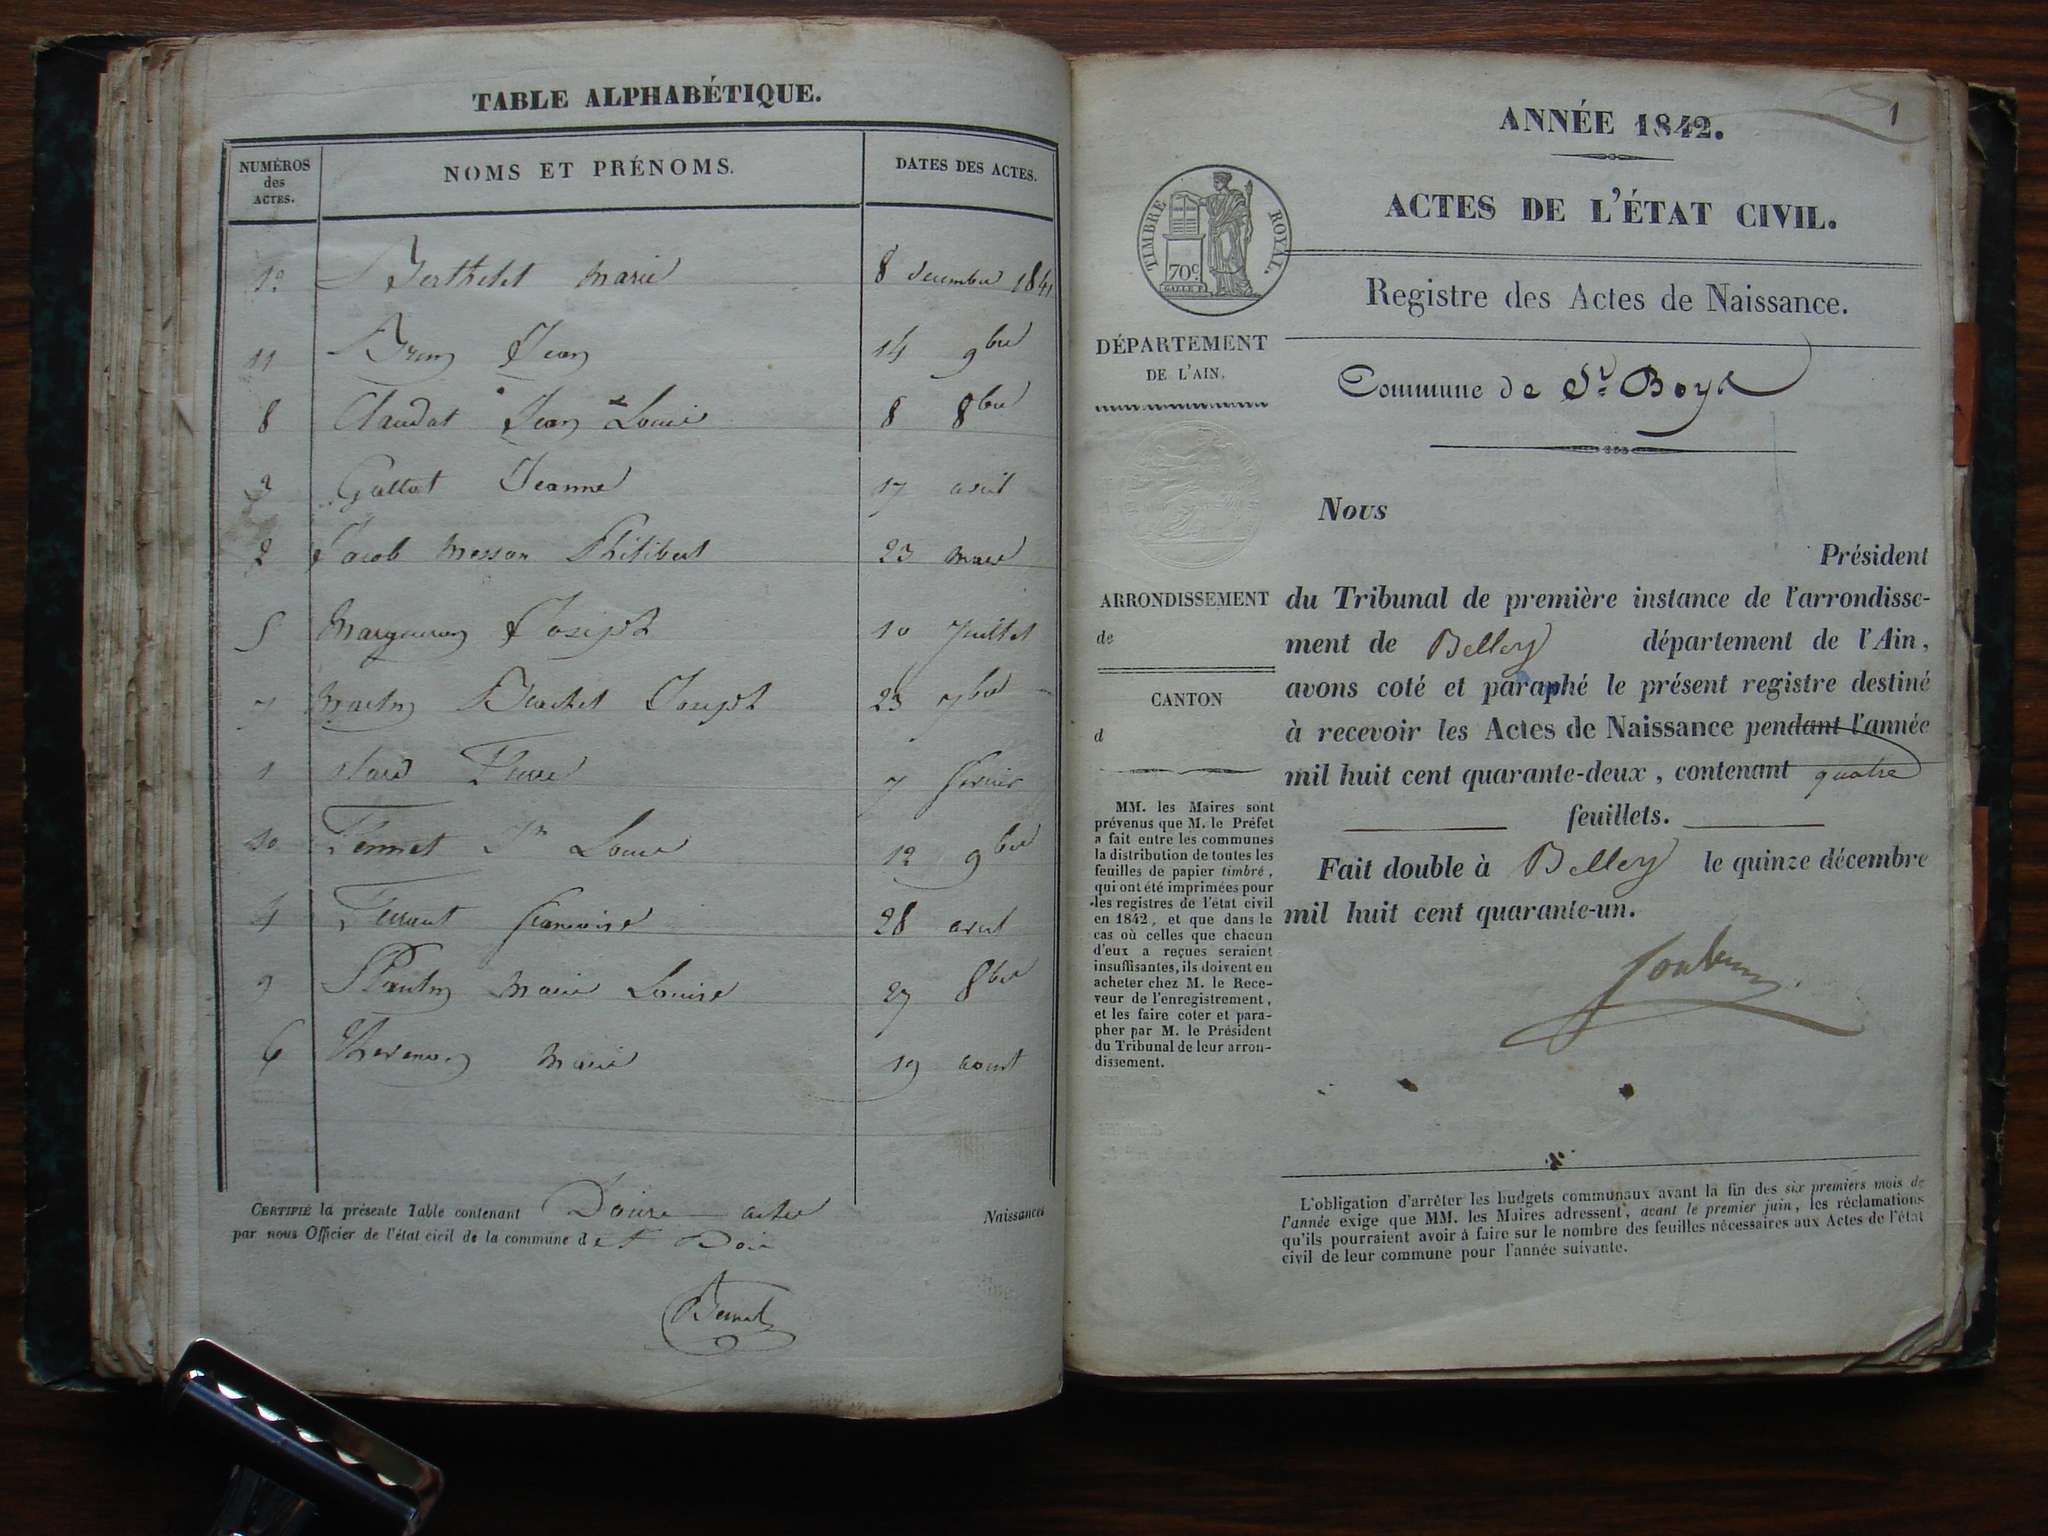 TABLE ALPHABÉTIQUE.
NUMÉROS des ACTES.
NOMS ET PRÉNOMS.
DATES DES ACTES.
12 Berthelet Marie 8 decembre 1841
11 Brun Jean 14 9bre
8 Claudat Jean Louis 8 8bre
3 Gallat Jeanne 17 avril
2 Jacob Messon Philibert 23 mars
5 Margueron Joseph 10 Juillet
7 Martin Joseph 23 7bre
1 Pierre 7 fevrier
10 Louis 12 9bre
4 Francoise 28 avril
9 Plantin Marie Louise 27 8bre
6 Thevenon Marie 19 aout
CERTIFIÉ la présente Table contenant Douze actes Naissances
par nous Officier de l'état civil de la commune de St Bois
1
ANNÉE 1842.
ACTES DE L'ÉTAT CIVIL.
TIMBRE ROYAL.
70c
Registre des Actes de Naissance.
DÉPARTEMENT
DE L'AIN.
Commune de St. Boys
Nous
Président
ARRONDISSEMENT
de
CANTON
d
du Tribunal de première instance de l'arrondisse-
ment de Belley département de l'Ain,
avons coté et paraphé le présent registre destiné
à recevoir les Actes de Naissance pendant l'année
mil huit cent quarante-deux, contenant quatre
feuillets.
Fait double à Belley le quinze décembre
mil huit cent quarante-un.
MM. les Maires sont
prévenus que M. le Préfet
a fait entre les communes
la distribution de toutes les
feuilles de papier timbré,
qui ont été imprimées pour
les registres de l'état civil
en 1842, et que dans le
cas où celles que chacun
d'eux a reçues seraient
insuffisantes, ils doivent en
acheter chez M. le Rece-
veur de l'enregistrement,
et les faire coter et para-
pher par M. le Président
du Tribunal de leur arron-
dissement.
L'obligation d'arrêter les budgets communaux avant la fin des six premiers mois de
l'année exige que MM. les Maires adressent, avant le premier juin, les réclamations
qu'ils pourraient avoir à faire sur le nombre des feuilles nécessaires aux Actes de l'état
civil de leur commune pour l'année suivante.